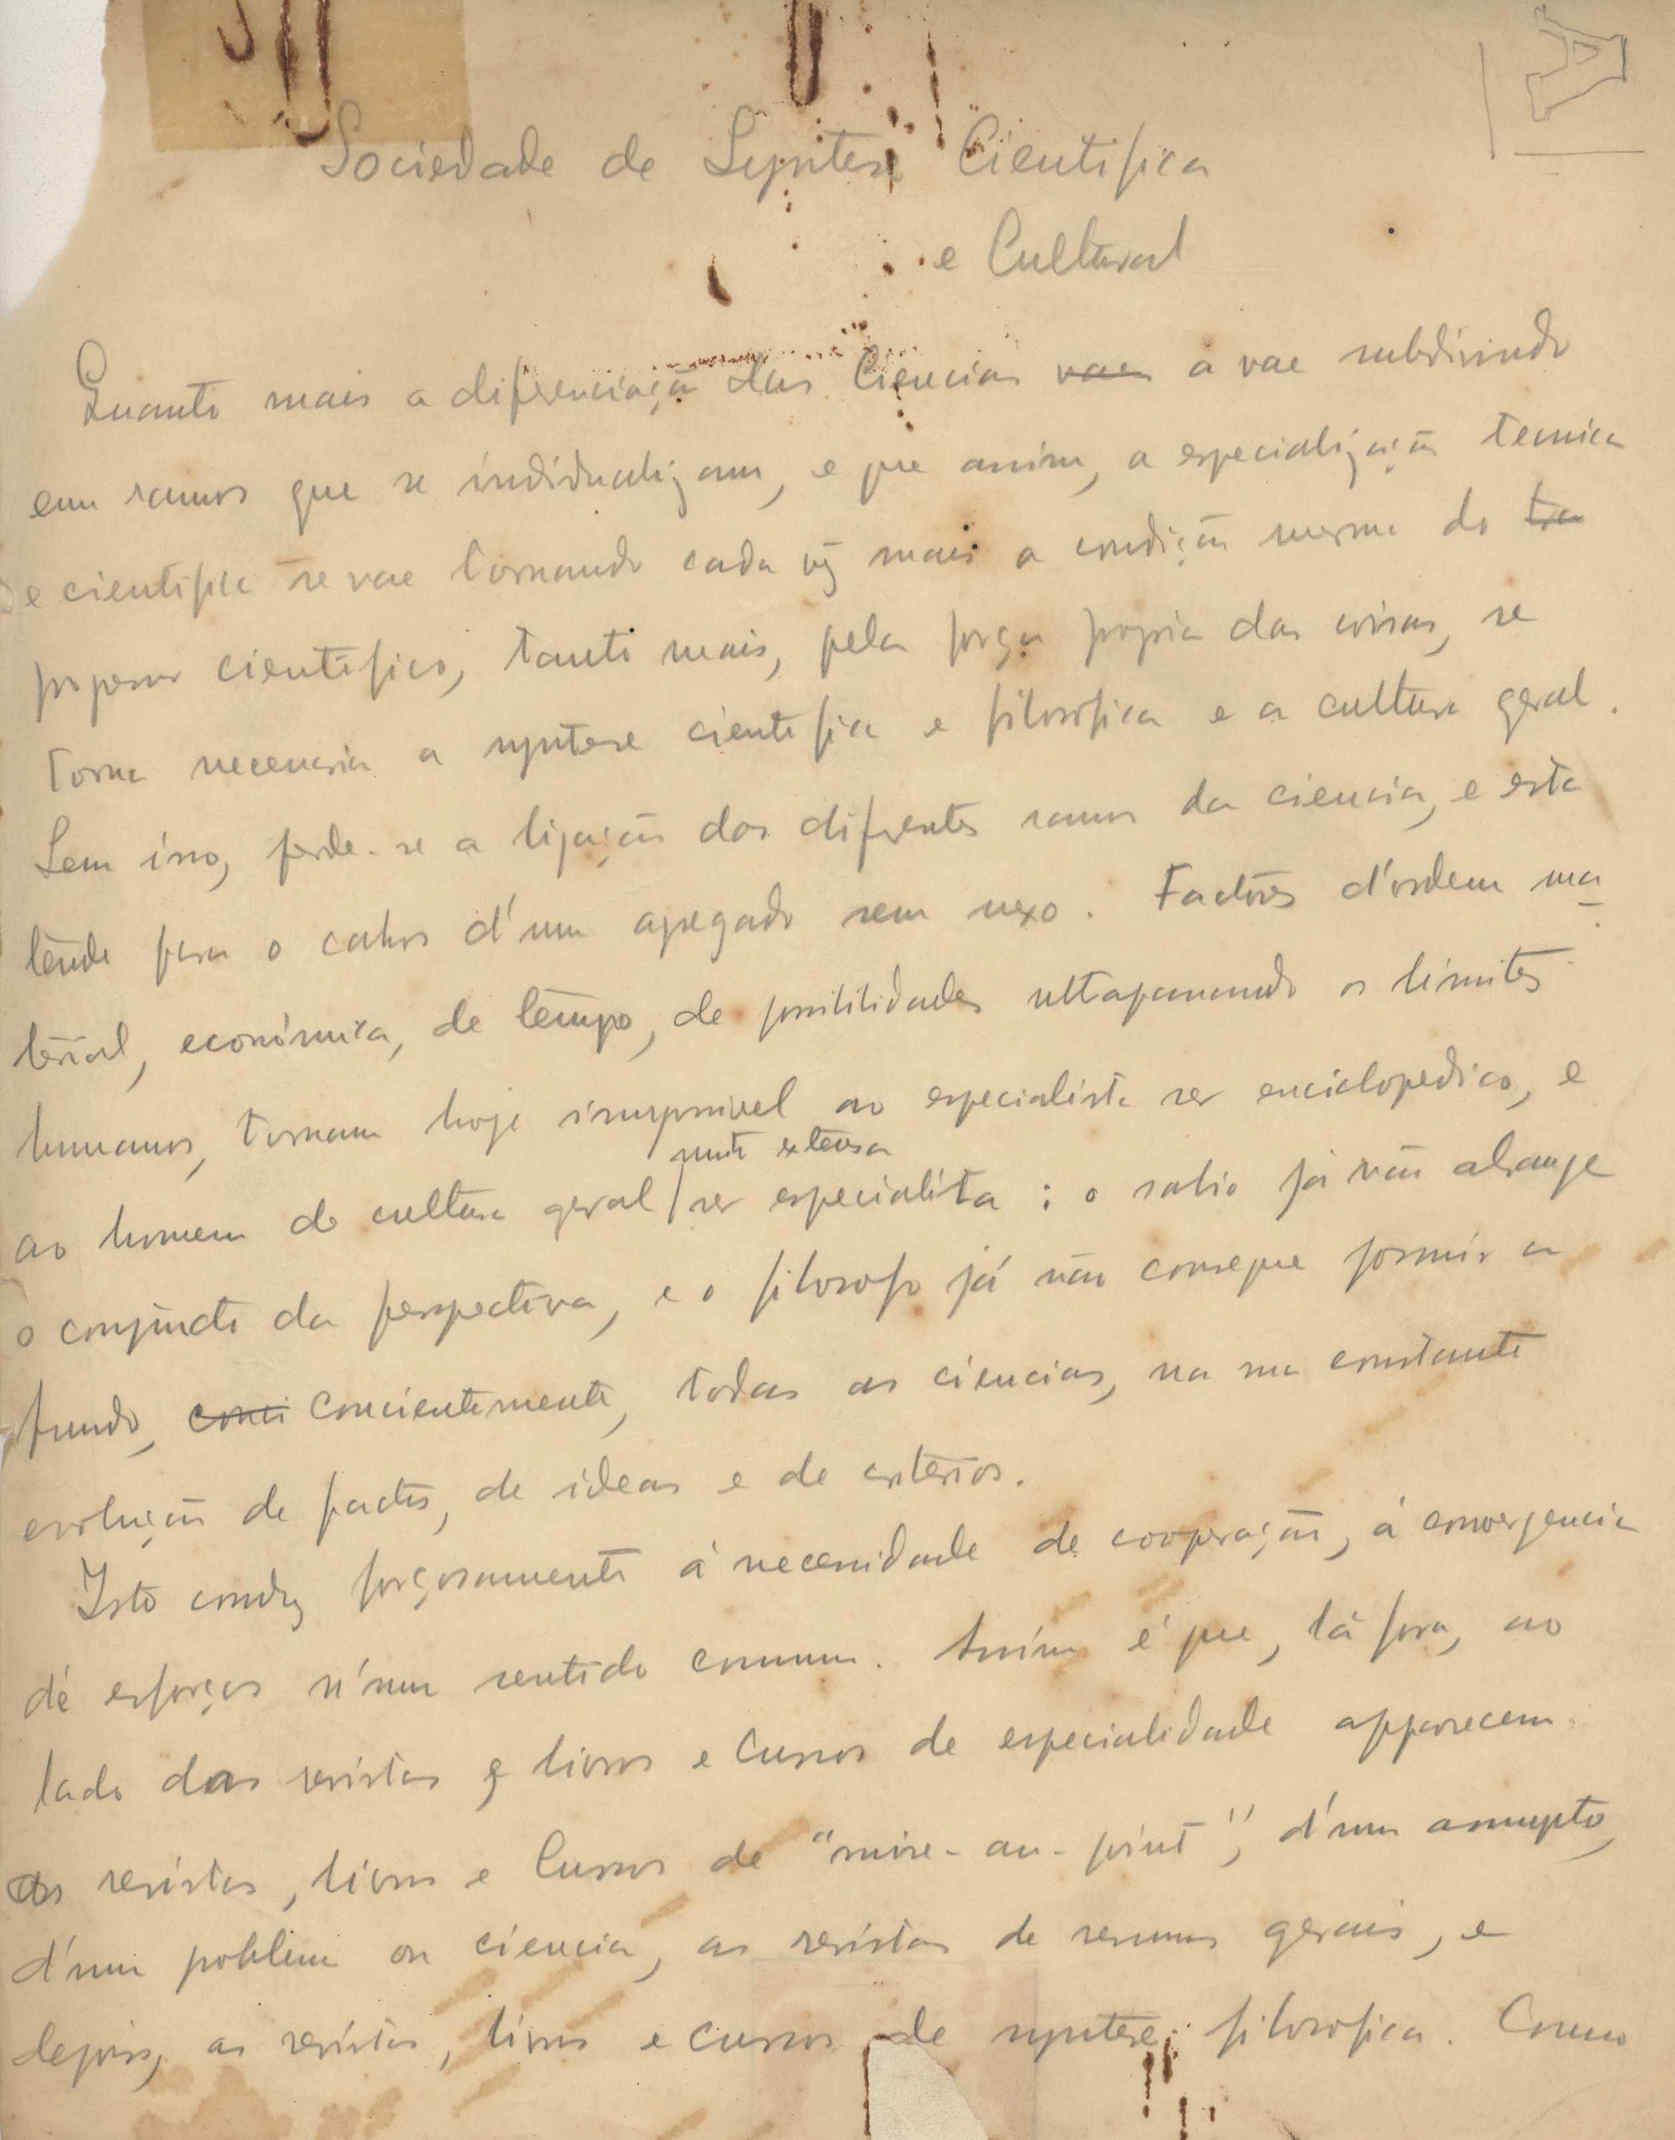 Sociedade de Syntese Cientifica
e Cultural
Quanto mais a diferenciação das Ciencias vaes a vae subdivindo
em ramos que se individualizam, e que assim, a especialização tecnica
e cientifica se vae tornando cada vez mais a condição mesma do tra
progresso cientifico, tanto mais, pela força propria das coisas, se
torna necessaria a syntese cientifica e filosofica e a cultura geral.
Sem isso, perde-se a ligação dos diferentes ramos da ciencia, e esta
tende para o cahos d'um agregado sem nexo. Factores d'ordem ma-
terial, económica, de tempo, de possibilidades ultrapassando os limites
humanos, tornam hoje impossivel ao especialista ser enciclopedico, e
muito extensa
ao homem de cultura geral ser especialista : o sabio já não abrange
o conjuncto da perspectiva, e o filosofo já não consegue possuir a
fundo, consi conscientemente, todas as ciencias, na sua constante
evolução de factos, de ideas e de criterios.
Isto conduz forçosamente á necessidade de cooperação, á convergencia
de esforços n'um sentido comum. Assim é que, lá fora, ao
lado das revistas e livros e Cursos de especialidade apparecem
as revistas, livros e Cursos de "mise-au-point", d'um assumpto,
d'um problema ou ciencia, as revistas de resumos gerais, e
depois, as revistas, livros e cursos de syntese filosofica. Como